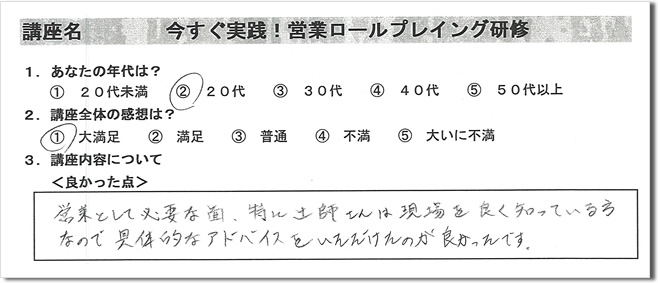 講座名　今すぐ実践！営業ロールプレイング研修
１．あなたの年代は？
①　２０代未満　②　２０代　③　３０代　④　４０代　⑤　５０代以上
２．講座全体の感想は？
①　大満足　②　満足　③　普通　④　不満　⑤　大いに不満
３．講座内容について
＜良かった点＞
営業として必要な面、特に土師さんは現場を良く知っている方
なので具体的なアドバイスをいただけたのが良かったです。